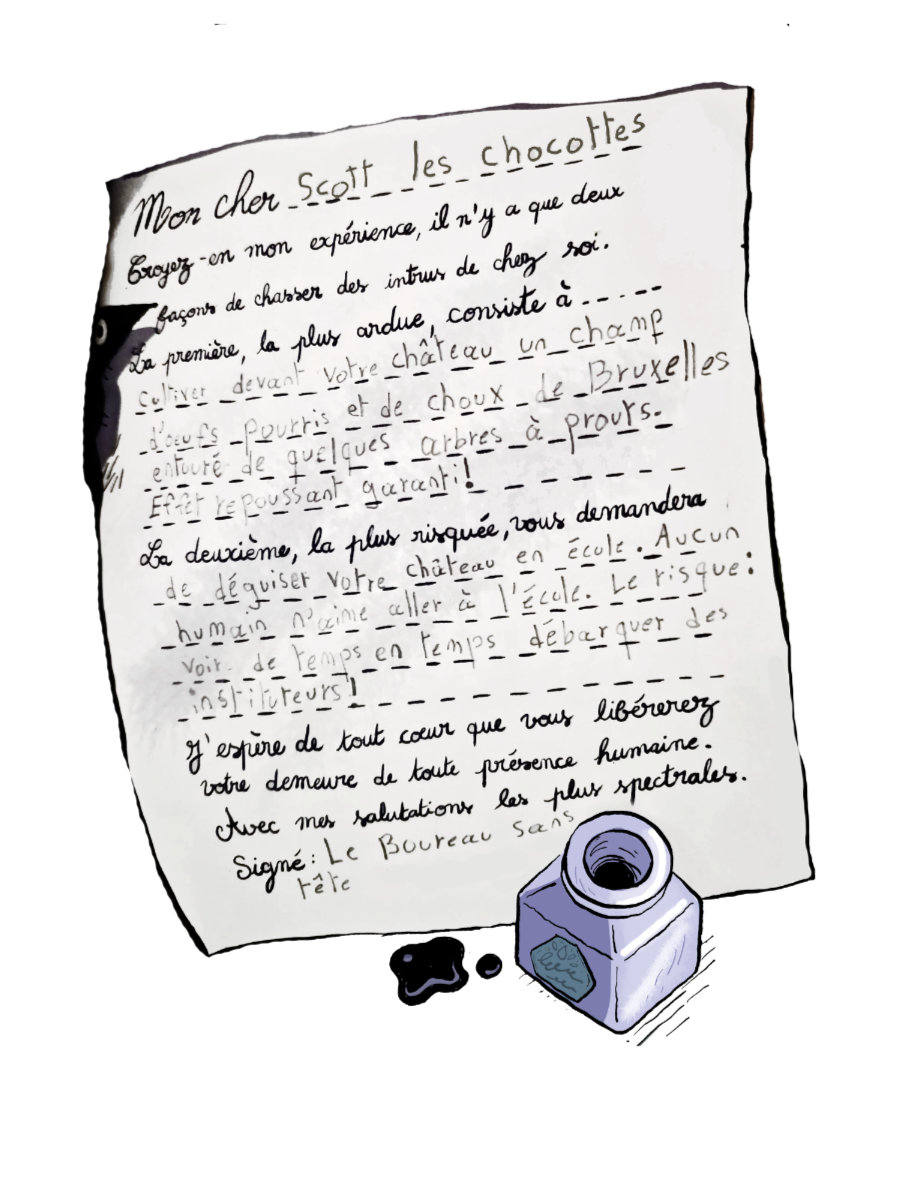 Mon cher Scott les chocottes
Croyez-en mon expérience, il n'y a que deux
façons de chasser des intrus de chez soi.
La première, la plus ardue, consiste à
cultiver devant votre château un champ
d'œufs pourris et de choux de Bruxelles
entouré de quelques arbres à prouts.
Effet repoussant garanti!
La deuxième, la plus risquée, vous demandera
de déguiser votre château en école. Aucun
humain n'aime aller à l'école. Le risque:
voir de temps en temps débarquer des
instituteurs!
J'espère de tout cœur que vous libérerez
votre demeure de toute présence humaine.
Avec mes salutations les plus spectrales.
Signé: Le Boureau sans
tête